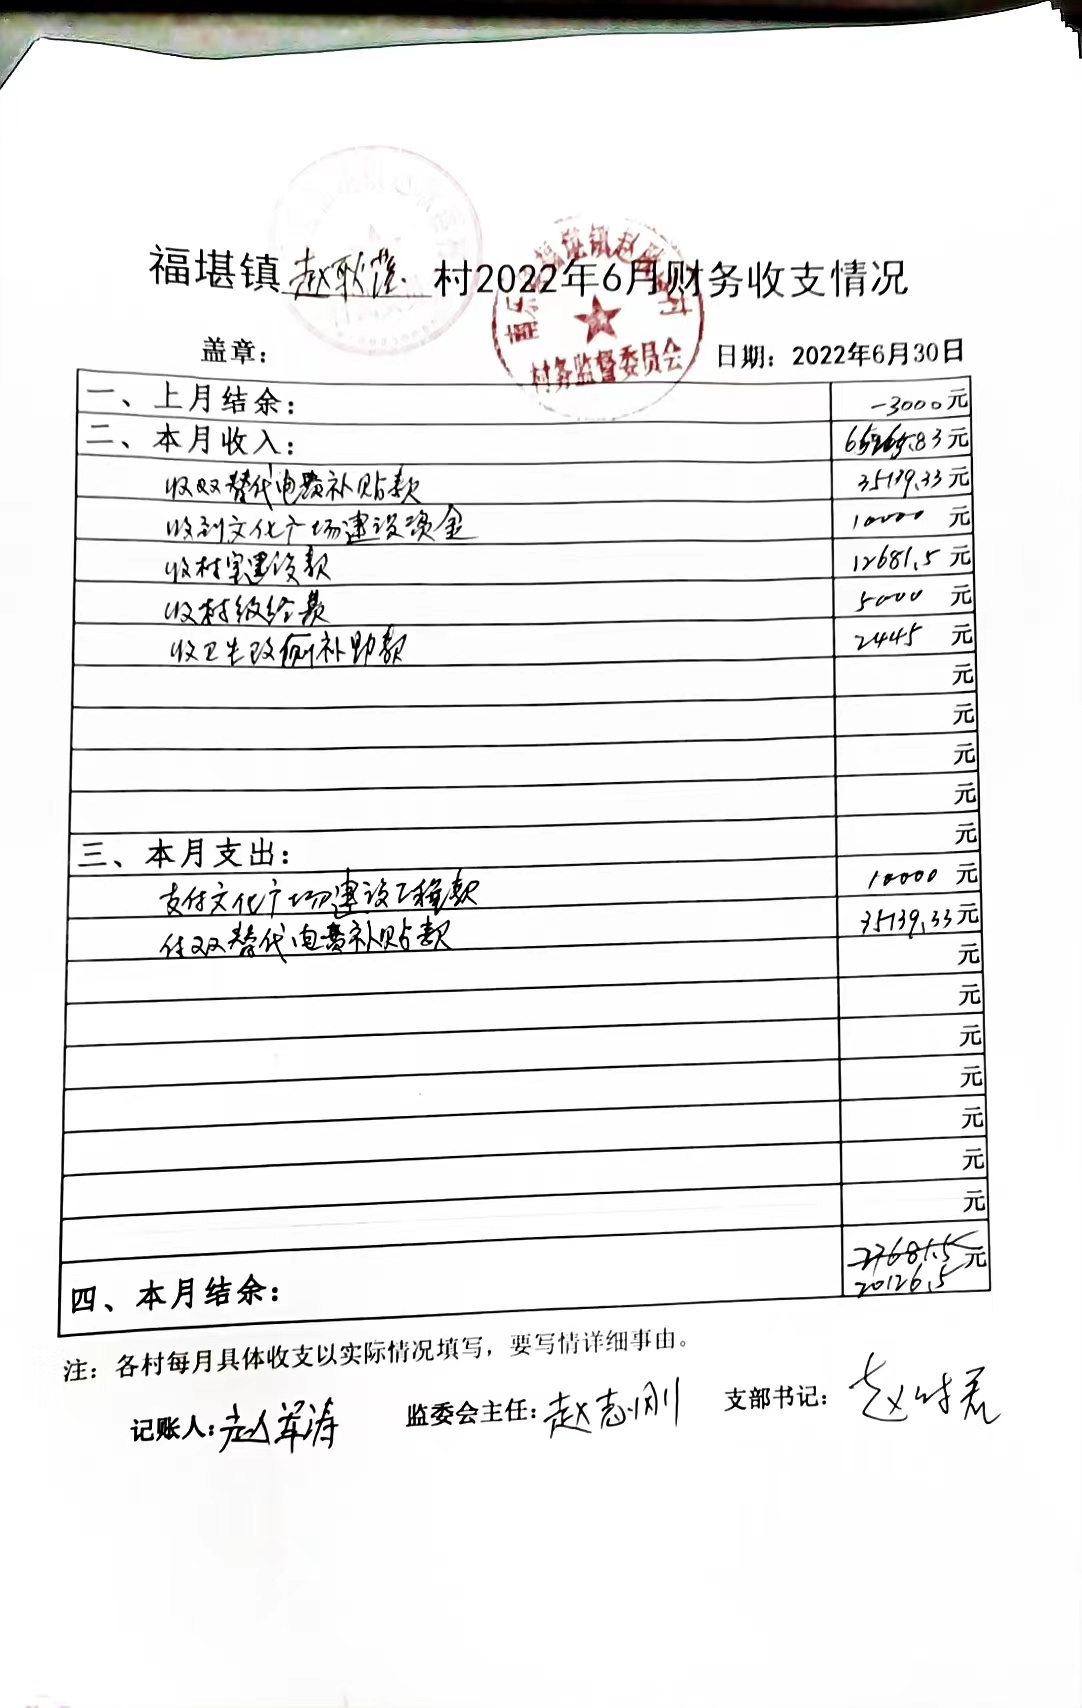 福堪镇赵耿落村2022年6月财务收支情况
村务监督委员会
盖章: 日期: 2022年6月30日
一、上月结余: -3000元
二、本月收入: 65265.83元
收双替代电费补贴款 35139.33元
收到文化广场建设资金 10000元
收村室建设款 12681.5元
收村级经费 5000元
收卫生改厕补助款 2445元
元
元
元
元
三、本月支出: 元
支付文化广场建设工程款 10000元
付双替代电费补贴款 35139.33元
元
元
元
元
元
元
元
四、本月结余: 27681.5元
20126.5
注: 各村每月具体收支以实际情况填写, 要写情详细事由。
记账人: 赵军涛 监委会主任: 赵志刚 支部书记: 赵